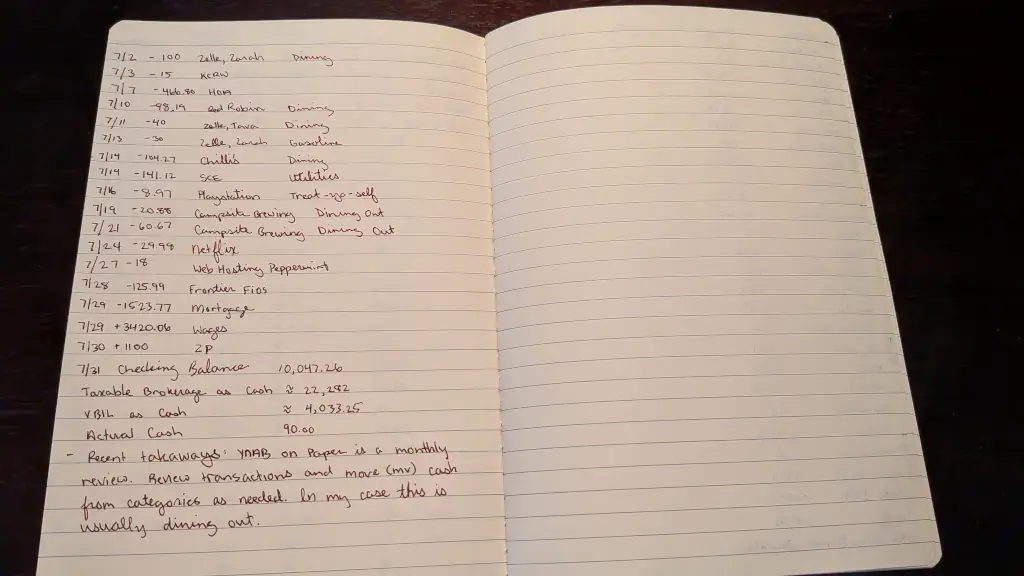 7/2 - 100 Zelle, Zarah Dining
7/3 - 15 KCRW
7/7 - 466.80 HOA
7/10 -98.19 Red Robin Dining
7/11 -40 Zelle, Tava Dining
7/13 -30 Zelle, Zarah Gasoline
7/14 -104.27 Chillis Dining
7/14 -141.12 SCE Utilities
7/16 -8.97 Playstation Treat-yo-self
7/19 -20.88 Campsite Brewing Dining Out
7/21 -60.67 Campsite Brewing Dining Out
7/24 -29.98 Netflix
7/27 -18 Web Hosting Peppermint
7/28 -125.99 Frontier Fios
7/29 -1523.77 Mortgage
7/29 +3420.06 Wages
7/30 +1100 ZP
7/31 Checking Balance 10,047.26
Taxable Brokerage as Cash ≈ 22,282
VBIL as Cash ≈ 4,033.25
Actual Cash 90.00
- Recent takaways: YNAB on Paper is a monthly
review. Review transactions and move (mv) cash
from categories as needed. In my case this is
usually dining out.